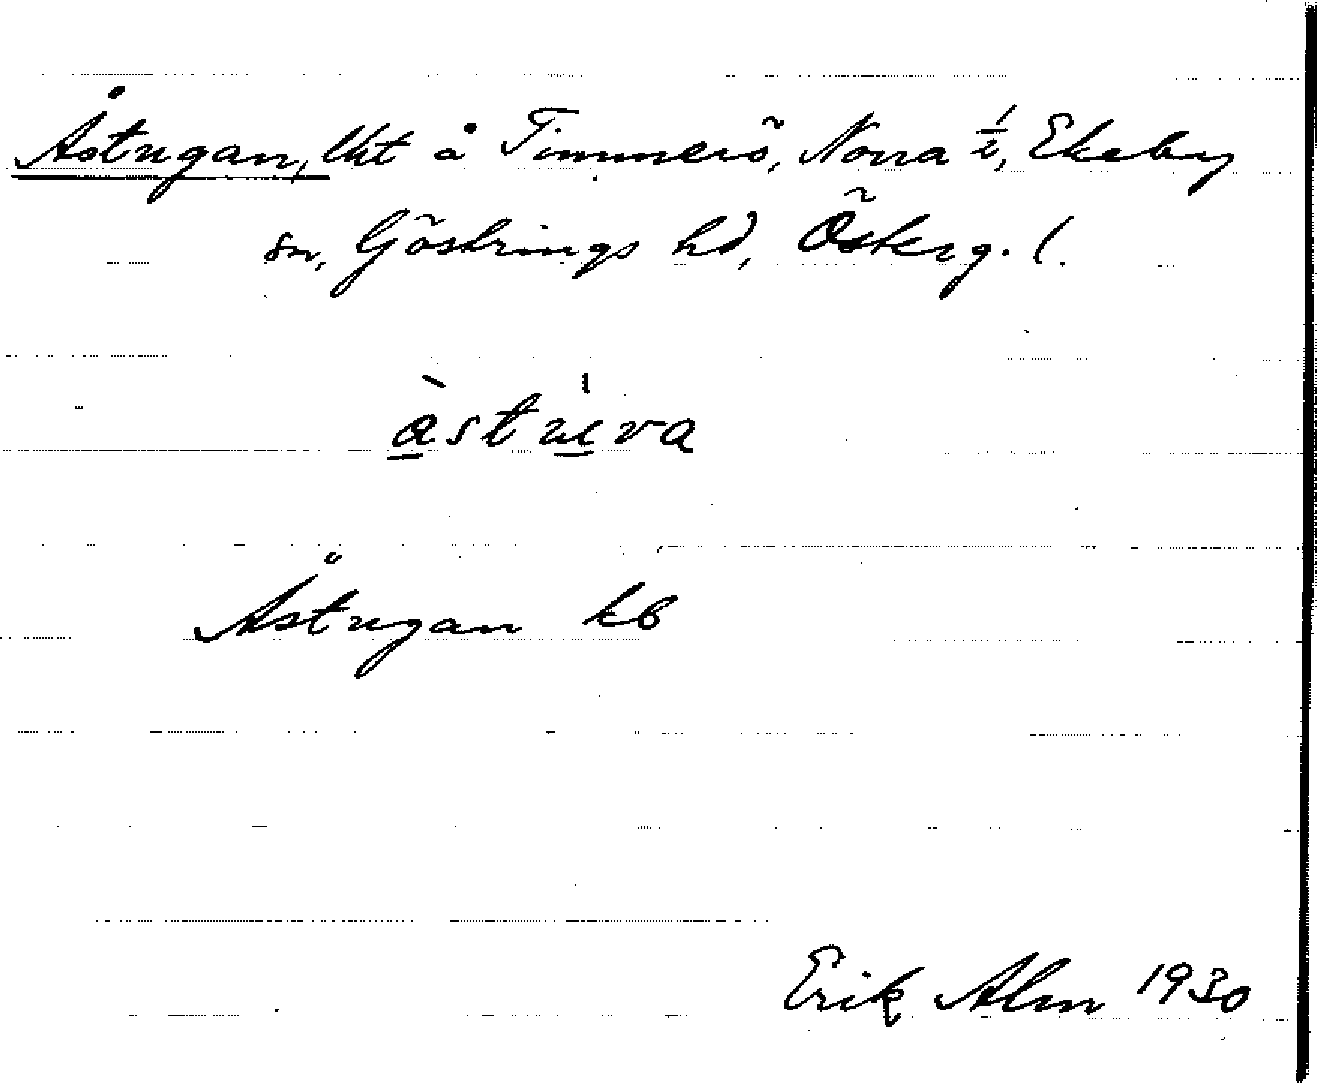 Åstugan, lht å Timmerö, Norra ½, Ekeby
sn, Göstrings hd, Österg. l.
àstu̲va
Åstugan kb
Erik Alm 1930